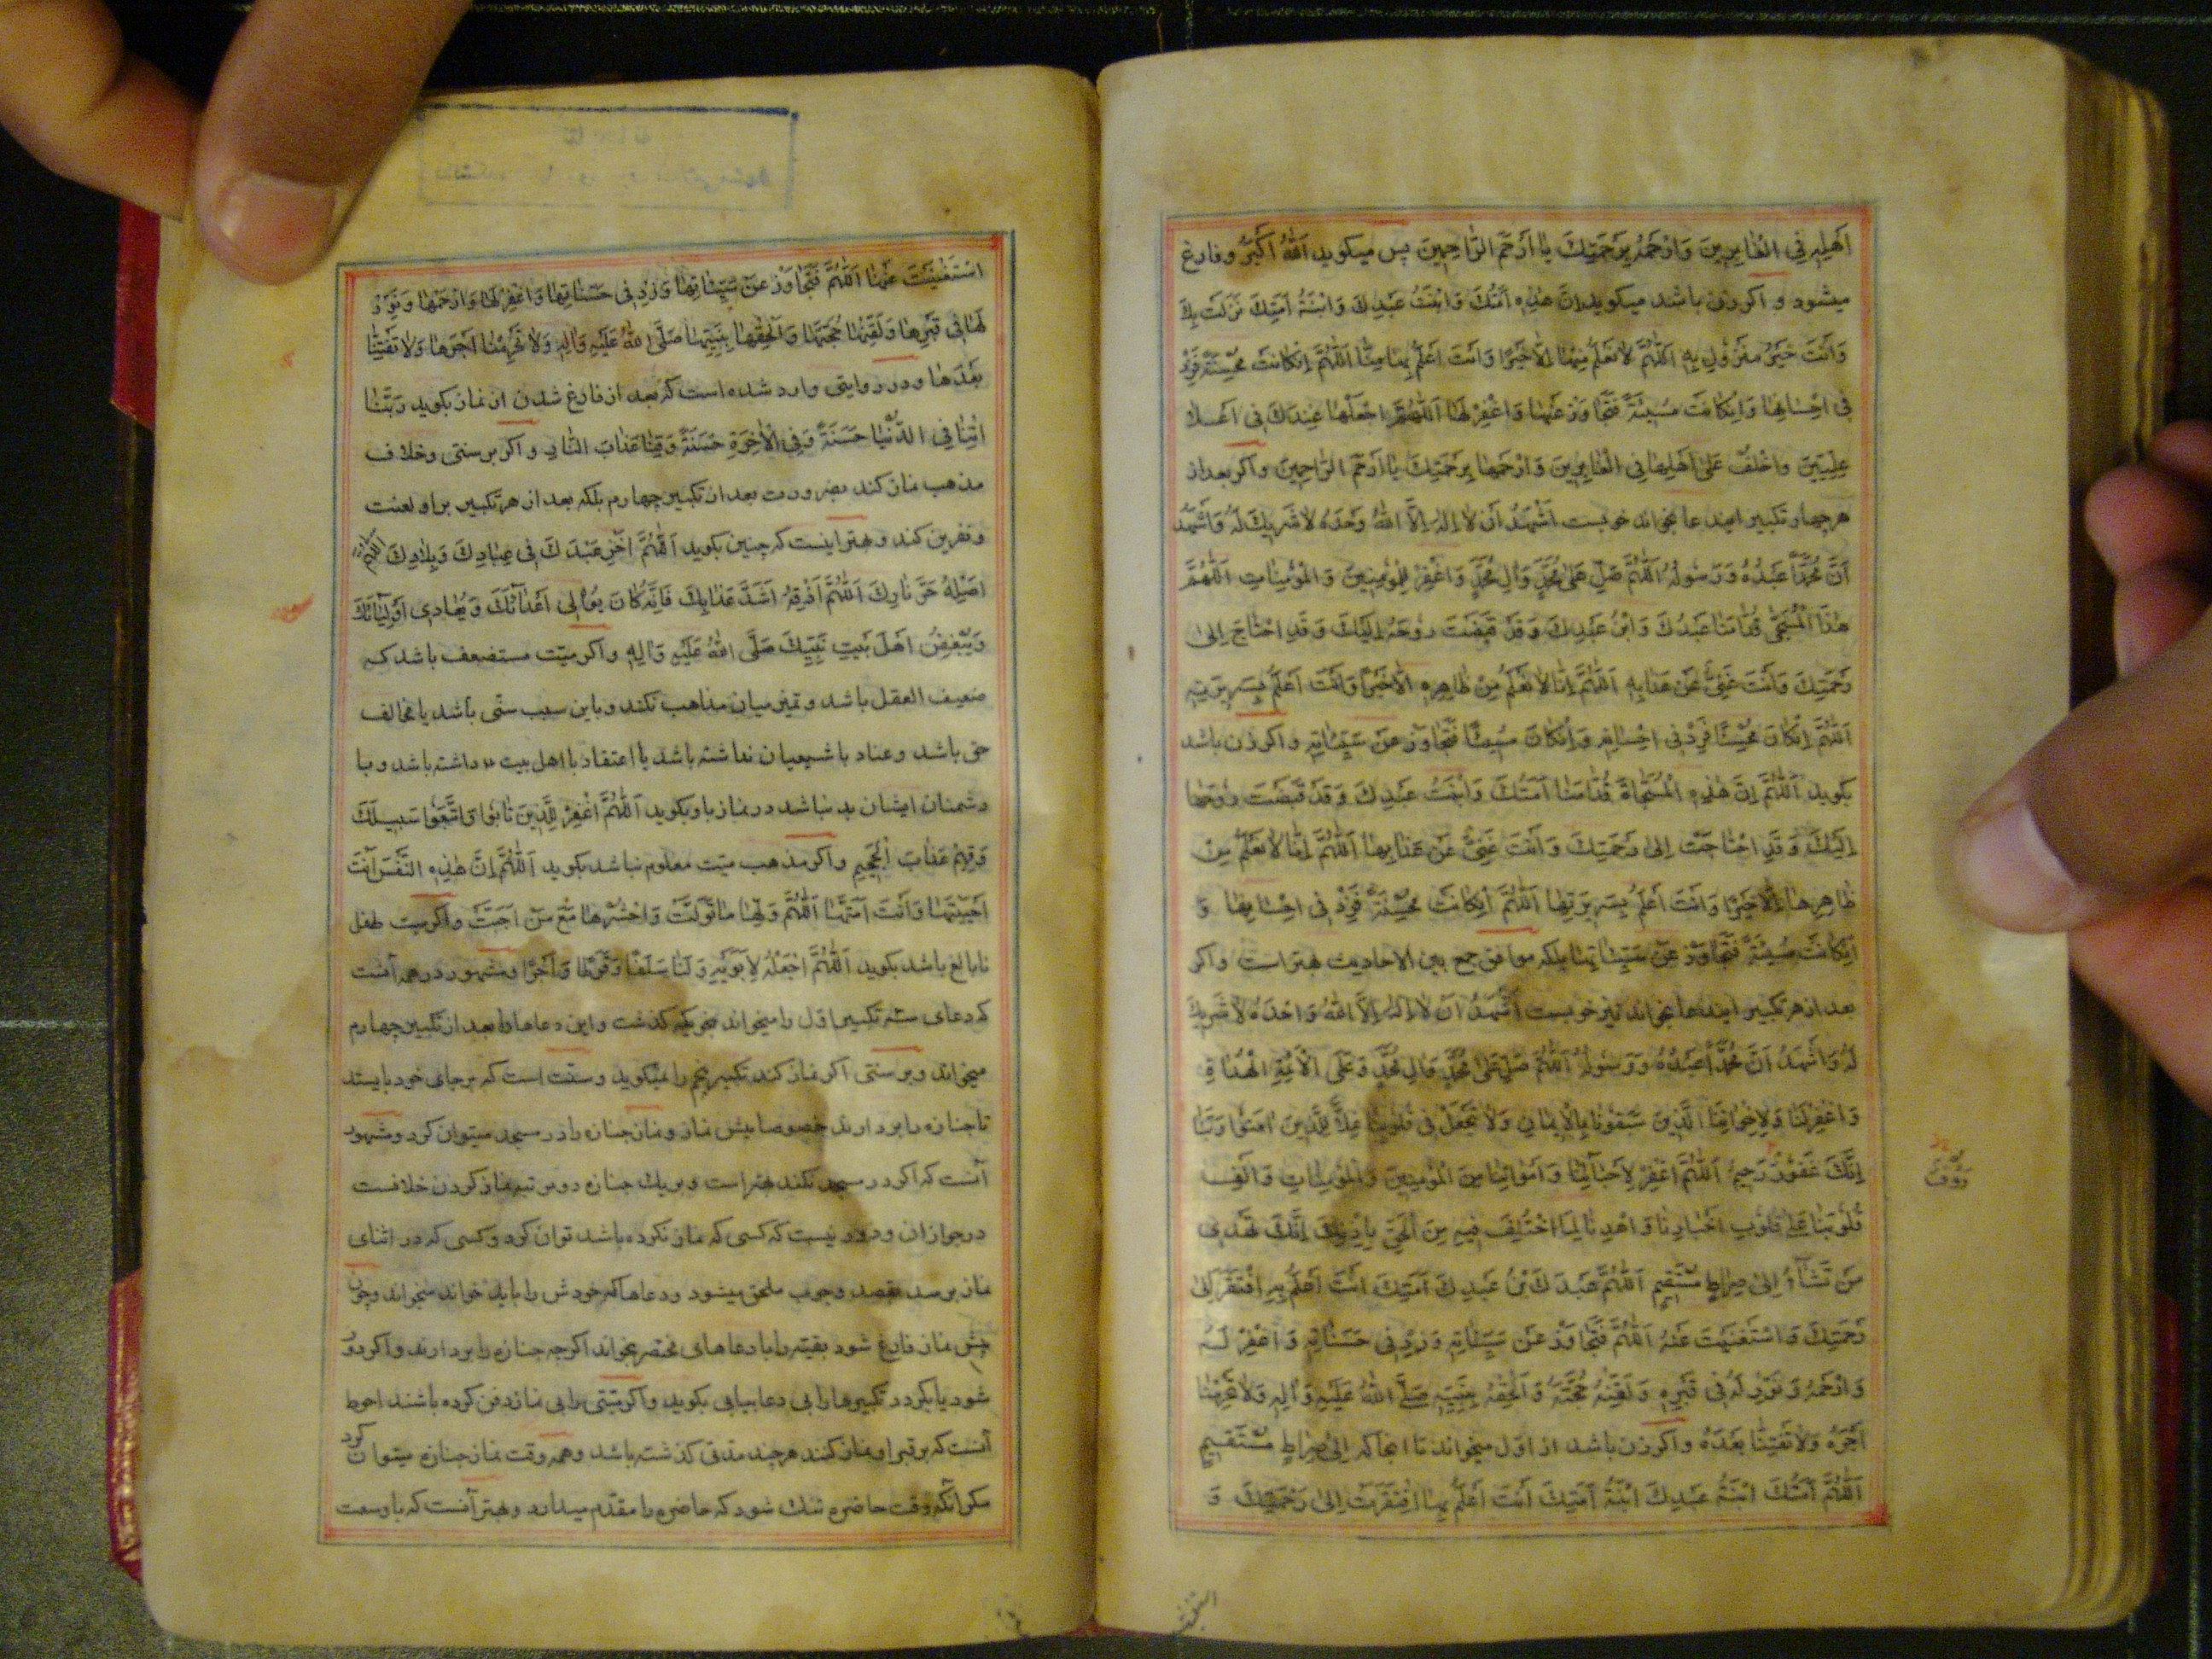 اَهْلِهِ فِی الْغَابِرِینَ وَارْحَمْهُ بِرَحْمَتِكَ یَا اَرْحَمَ الرَّاحِمِینَ پس میکوید اَللهُ اَکْبَرُ و فارغ
میشود و اکر زن باشد میکوید اِنَّ هٰذِهِ اَمَتُكَ وَابْنَتُ عَبْدِكَ وَابْنَةُ اَمَتِكَ نَزَلَتْ بِكَ
وَاَنْتَ خَیْرُ مَنْزُولٍ بِهِ اَللّٰهُمَّ لَا نَعْلَمُ مِنْهَا اِلَّا خَیْرًا وَاَنْتَ اَعْلَمُ بِهَا مِنَّا اَللّٰهُمَّ اِنْکَانَتْ مُحْسِنَةً فَزِدْ
فِی اِحْسَانِهَا وَاِنْکَانَتْ مُسِیئَةً فَتَجَاوَزْ عَنْهَا وَاغْفِرْ لَهَا اَللّٰهُمَّ اجْعَلْهَا عِنْدَكَ فِی اَعْلَا
عِلِّیِّینَ وَاخْلُفْ عَلیٰ اَهْلِهَا فِی الْغَابِرِینَ وَارْحَمْهَا بِرَحْمَتِكَ یَا اَرْحَمَ الرَّاحِمِینَ واکر بعد از
هر چهار تکبیر ایندعا بخواند خوبست اَشْهَدُ اَنْ لَا اِلٰهَ اِلَّا اللهُ وَحْدَهُ لَا شَرِیكَ لَهُ وَاَشْهَدُ
اَنَّ مُحَمَّدًا عَبْدُهُ وَرَسُولُهُ اَللّٰهُمَّ صَلِّ عَلیٰ مُحَمَّدٍ وَاٰلِ مُحَمَّدٍ وَاغْفِرْ لِلْمُؤْمِنِینَ وَالْمُؤْمِنَاتِ اَللّٰهُمَّ
هٰذَا الْمُسَجّٰی قُدَّامَنَا عَبْدُكَ وَابْنُ عَبْدِكَ وَقَدْ قَبَضْتَ رُوحَهُ اِلَیْكَ وَقَدِ احْتَاجَ اِلیٰ
رَحْمَتِكَ وَاَنْتَ غَنِیٌّ عَنْ عَذَابِهِ اَللّٰهُمَّ اِنَّا لَا نَعْلَمُ مِنْ ظَاهِرِهِ اِلَّا خَیْرًا وَاَنْتَ اَعْلَمُ بِسَرِیرَتِهِ
اَللّٰهُمَّ اِنْکَانَ مُحْسِنًا فَزِدْ فِی اِحْسَانِهِ وَاِنْکَانَ مُسِیئًا فَتَجَاوَزْ عَنْ سَیِّئَاتِهِ و اکر زن باشد
بکوید اَللّٰهُمَّ اِنَّ هٰذِهِ الْمُسَجَّاةَ قُدَّامَنَا اَمَتُكَ وَابْنَتُ عَبْدِكَ وَقَدْ قَبَضْتَ رُوحَهَا
اِلَیْكَ وَقَدِ احْتَاجَتْ اِلیٰ رَحْمَتِكَ وَاَنْتَ غَنِیٌّ عَنْ عَذَابِهَا اَللّٰهُمَّ اِنَّا لَا نَعْلَمُ مِنْ
ظَاهِرِهَا اِلَّا خَیْرًا وَاَنْتَ اَعْلَمُ بِسَرِیرَتِهَا اَللّٰهُمَّ اِنْکَانَتْ مُحْسِنَةً فَزِدْ فِی اِحْسَانِهَا وَ
اِنْکَانَتْ مُسِیئَةً فَتَجَاوَزْ عَنْ سَیِّئَاتِهَا بلکه موافق جمع بین الاحادیث بهتر است واکر
بعد از هر تکبیر ایندعا بخواند نیز خوبست اَشْهَدُ اَنْ لَا اِلٰهَ اِلَّا اللهُ وَاحْدَهُ لَا شَرِیكَ
لَهُ وَاَشْهَدُ اَنَّ مُحَمَّدًا عَبْدُهُ وَرَسُولُهُ اَللّٰهُمَّ صَلِّ عَلیٰ مُحَمَّدٍ وَاٰلِ مُحَمَّدٍ وَعَلَی الْاَئِمَّةِ الْهُدَاةِ
وَاغْفِرْ لَنَا وَلِاِخْوَانِنَا الَّذِینَ سَبَقُونَا بِالْاِیمَانِ وَلَا تَجْعَلْ فِی قُلُوبِنَا غِلًّا لِلَّذِینَ اٰمَنُوا رَبَّنَا
اِنَّكَ غَفُورٌ رَحِیمٌ اَللّٰهُمَّ اغْفِرْ لِاَحْیَائِنَا وَاَمْوَاتِنَا مِنَ الْمُؤْمِنِینَ وَالْمُؤْمِنَاتِ وَاَلِّفْ
رَؤُفٌ
قُلُوبَنَا عَلیٰ قُلُوبِ اَخْیَارِنَا وَاهْدِنَا لِمَا اخْتُلِفَ فِیهِ مِنَ الْحَقِّ بِاِذْنِكَ اِنَّكَ تَهْدِی
مَنْ تَشَاءُ اِلیٰ صِرَاطٍ مُسْتَقِیمٍ اَللّٰهُمَّ عَبْدُكَ بْنُ عَبْدِكَ اَمَتِكَ اَنْتَ اَعْلَمُ بِهِ افْتَقَرَ اِلیٰ
رَحْمَتِكَ وَاسْتَغْنَیْتَ عَنْهُ اَللّٰهُمَّ فَتَجَاوَزْ عَنْ سَیِّئَاتِهِ وَزِدْ فِی حَسَنَاتِهِ وَاغْفِرْ لَهُ
وَارْحَمْهُ وَنَوِّرْ لَهُ فِی قَبْرِهِ وَلَقِّنْهُ حُجَّتَهُ وَاَلْحِقْهُ بِنَبِیِّهِ صَلَّی اللهُ عَلَیْهِ وَاٰلِهِ وَلَا تَحْرِمْنَا
اَجْرَهُ وَلَا تَفْتِنَّا بَعْدَهُ واکر زن باشد از اول میخواند تا انجا که اِلیٰ صِرَاطٍ مُسْتَقِیمٍ
اَللّٰهُمَّ اَمَتُكَ ابْنَةُ عَبْدِكَ ابْنَةُ اَمَتِكَ اَنْتَ اَعْلَمُ بِهَا افْتَقَرَتْ اِلیٰ رَحْمَتِكَ وَ
اسْتَغْنَیْتَ عَنْهَا اَللّٰهُمَّ فَتَجَاوَزْ عَنْ سَیِّئَاتِهَا وَزِدْ فِی حَسَنَاتِهَا وَاغْفِرْ لَهَا وَارْحَمْهَا وَنَوِّرْ
لَهَا فِی قَبْرِهَا وَلَقِّنْهَا حُجَّتَهَا وَاَلْحِقْهَا بِنَبِیِّهَا صَلَّی اللهُ عَلَیْهِ وَاٰلِهِ وَلَا تَحْرِمْنَا اَجْرَهَا وَلَا تَفْتِنَّا
بَعْدَهَا ودر روایتی وارد شده است که بعد از فارغ شدن از نماز بکوید رَبَّنَا
اٰتِنَا فِی الدُّنْیَا حَسَنَةً وَفِی الْاٰخِرَةِ حَسَنَةً وَقِنَا عَذَابَ النَّارِ و اکر بر سنتی وخلاف
مذهب نماز کند بضرورت بعد از تکبیر چهارم بلکه بعد از هر تکبیر بر او لعنت
و نفرین کند و بهتر اینست که چنین بکوید اَللّٰهُمَّ اخْزِ عَبْدَكَ فِی عِبَادِكَ وَبِلَادِكَ اَللّٰهُمَّ
اَصْلِهِ حَرَّ نَارِكَ اَللّٰهُمَّ اَذِقْهُ اَشَدَّ عَذَابِكَ فَاِنَّهُ کَانَ یُوَالِی اَعْدَائَكَ وَیُعَادِی اَوْلِیَائَكَ
وَیُبْغِضُ اَهْلَ بَیْتِ نَبِیِّكَ صَلَّی اللهُ عَلَیْهِ وَاٰلِهِ واکر میّت مستضعف باشد که
ضعیف العقل باشد و تمیز میان مذاهب نکند و باین سبب سنّی باشد یا مخالف
حق باشد و عناد با شیعیان نداشته باشد یا اعتقاد با اهل بیت داشته باشد و با
دشمنان ایشان بد نباشد در نماز باو بکوید اَللّٰهُمَّ اغْفِرْ لِلَّذِینَ تَابُوا وَاتَّبَعُوا سَبِیلَكَ
وَقِهِمْ عَذَابَ الْجَحِیمِ واکر مذهب میّت معلوم نباشد بکوید اَللّٰهُمَّ اِنَّ هٰذِهِ النَّفْسَ اَنْتَ
اَحْیَیْتَهَا وَاَنْتَ اَمَتَّهَا اَللّٰهُمَّ وَلِّهَا مَا تَوَلَّتْ وَاحْشُرْهَا مَعَ مَنْ اَحَبَّتْ واکر میت طفل
نابالغ باشد بکوید اَللّٰهُمَّ اجْعَلْهُ لِاَبَوَیْهِ وَلَنَا سَلَفًا وَفَرَطًا وَاَجْرًا ومشهور در همه آنست
که دعای سه تکبیر اول را میخواند بنحویکه کذشت واین دعاها را بعد از تکبیر چهارم
میخواند و بر سنتی اکر نماز کند تکبیر پنجم را نمیکوید و سنّت است که بر جای خود بایستد
تا جنازه را بردارند خصوصا پیش نماز و نماز جنازه را در مسجد میتوان کرد و مشهور
آنست که اکر در مسجد نکنند بهتر است و بریك جنازه دو مرتبه نماز کردن خلافست
در جواز ان و در نیست که کسی که نماز نکرده باشد توان کرد و کسی که در اثنای
نماز برسد بقصد وجوب ملحق میشود و دعاها که خودش را باید خواند میخواند وچون
پیش نماز فارغ شود بقیّه را با دعاهای مختصر بخواند اکرچه جنازه را بردارند و اکر دور
شود یا بکردد تکبیرها را بی دعا بیاپی بکوید واکر میّتی را بی نماز دفن کرده باشند احوط
آنست که بر قبر او نماز کنند هر چند مدتی کذشته باشد وهمه وقت نماز جنازه میتوان کرد
مکر آنکه وقت حاضره تنك شود که حاضره را مقدّم میدارد و بهتر آنست که با وسعت